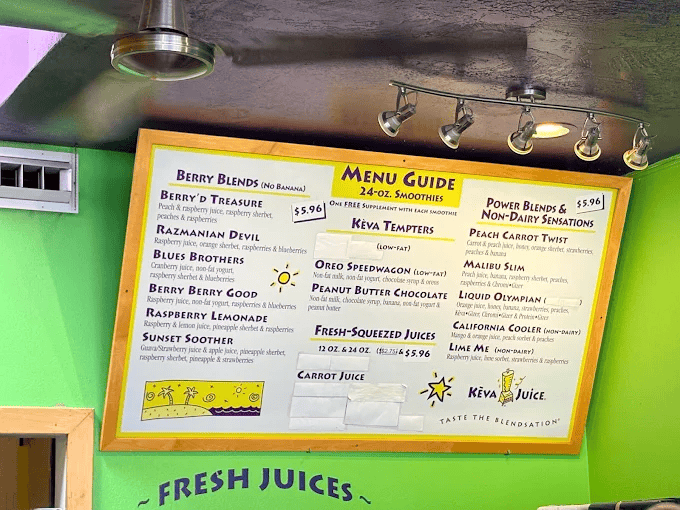 MENU GUIDE
24-OZ. SMOOTHIES
ONE FREE SUPPLEMENT WITH EACH SMOOTHIE
BERRY BLENDS (NO BANANA)
$5.96
BERRY'D TREASURE
Peach & raspberry juice, raspberry sherbet,
peaches & raspberries
RAZMANIAN DEVIL
Raspberry juice, orange sherbet, raspberries & blueberries
BLUES BROTHERS
Cranberry juice, non-fat yogurt,
raspberry sherbet & blueberries
BERRY BERRY GOOD
Raspberry juice, non-fat yogurt, raspberries & blueberries
RASPBERRY LEMONADE
Raspberry & lemon juice, pineapple sherbet & raspberries
SUNSET SOOTHER
Guava/Strawberry juice & apple juice, pineapple sherbet,
raspberry sherbet, pineapple & strawberries
KĒVA TEMPTERS
(LOW-FAT)
OREO SPEEDWAGON (LOW-FAT)
Non-fat milk, non-fat yogurt, chocolate syrup & oreos
PEANUT BUTTER CHOCOLATE
Non-fat milk, chocolate syrup, banana, non-fat yogurt &
peanut butter
FRESH-SQUEEZED JUICES
12 OZ. & 24 OZ. ($2.75) & $5.96
CARROT JUICE
POWER BLENDS &
NON-DAIRY SENSATIONS
$5.96
PEACH CARROT TWIST
Carrot & peach juice, honey, orange sherbet, strawberries,
peaches & banana
MALIBU SLIM
Peach juice, banana, raspberry sherbet, peaches,
raspberries & Chromi•Gizer
LIQUID OLYMPIAN (
Orange juice, honey, banana, strawberries, peaches,
Kēva•Gizer, Chromi•Gizer & Protein•Gizer
CALIFORNIA COOLER (NON-DAIRY)
Mango & orange juice, peach sorbet & peaches
LIME ME (NON-DAIRY)
Raspberry juice, lime sorbet, strawberries & raspberries
KĒVA JUICE
TASTE THE BLENDSATION
~ FRESH JUICES ~